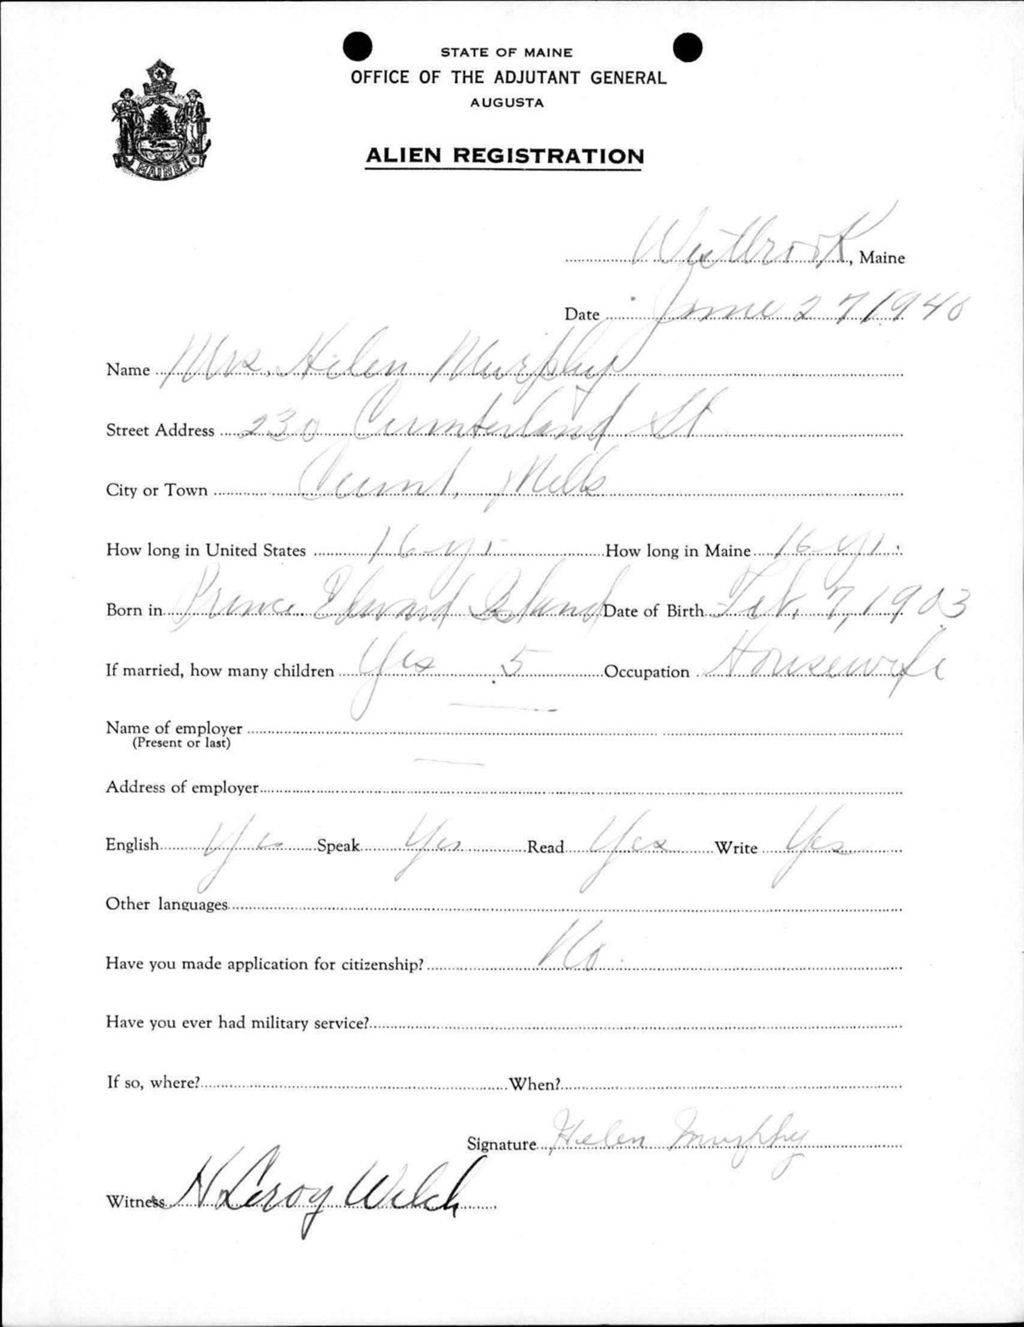 STATE OF MAINE
OFFICE OF THE ADJUTANT GENERAL
AUGUSTA
ALIEN REGISTRATION
MAINE
Westbrook, Maine
Date June 27 1940
Name Mrs. Helen Murphy
Street Address 230 Cumberland St
City or Town Cumb. Mills
How long in United States 16 yrs How long in Maine 16 yrs.
Born in Prince Edward Island Date of Birth Feb. 7, 1903
If married, how many children Yes 5 Occupation Housewife
Name of employer —
(Present or last)
Address of employer —
English Yes Speak Yes Read Yes Write Yes
Other languages
Have you made application for citizenship? No
Have you ever had military service?
If so, where? When?
Signature Helen Murphy
Witness H Leroy Welch